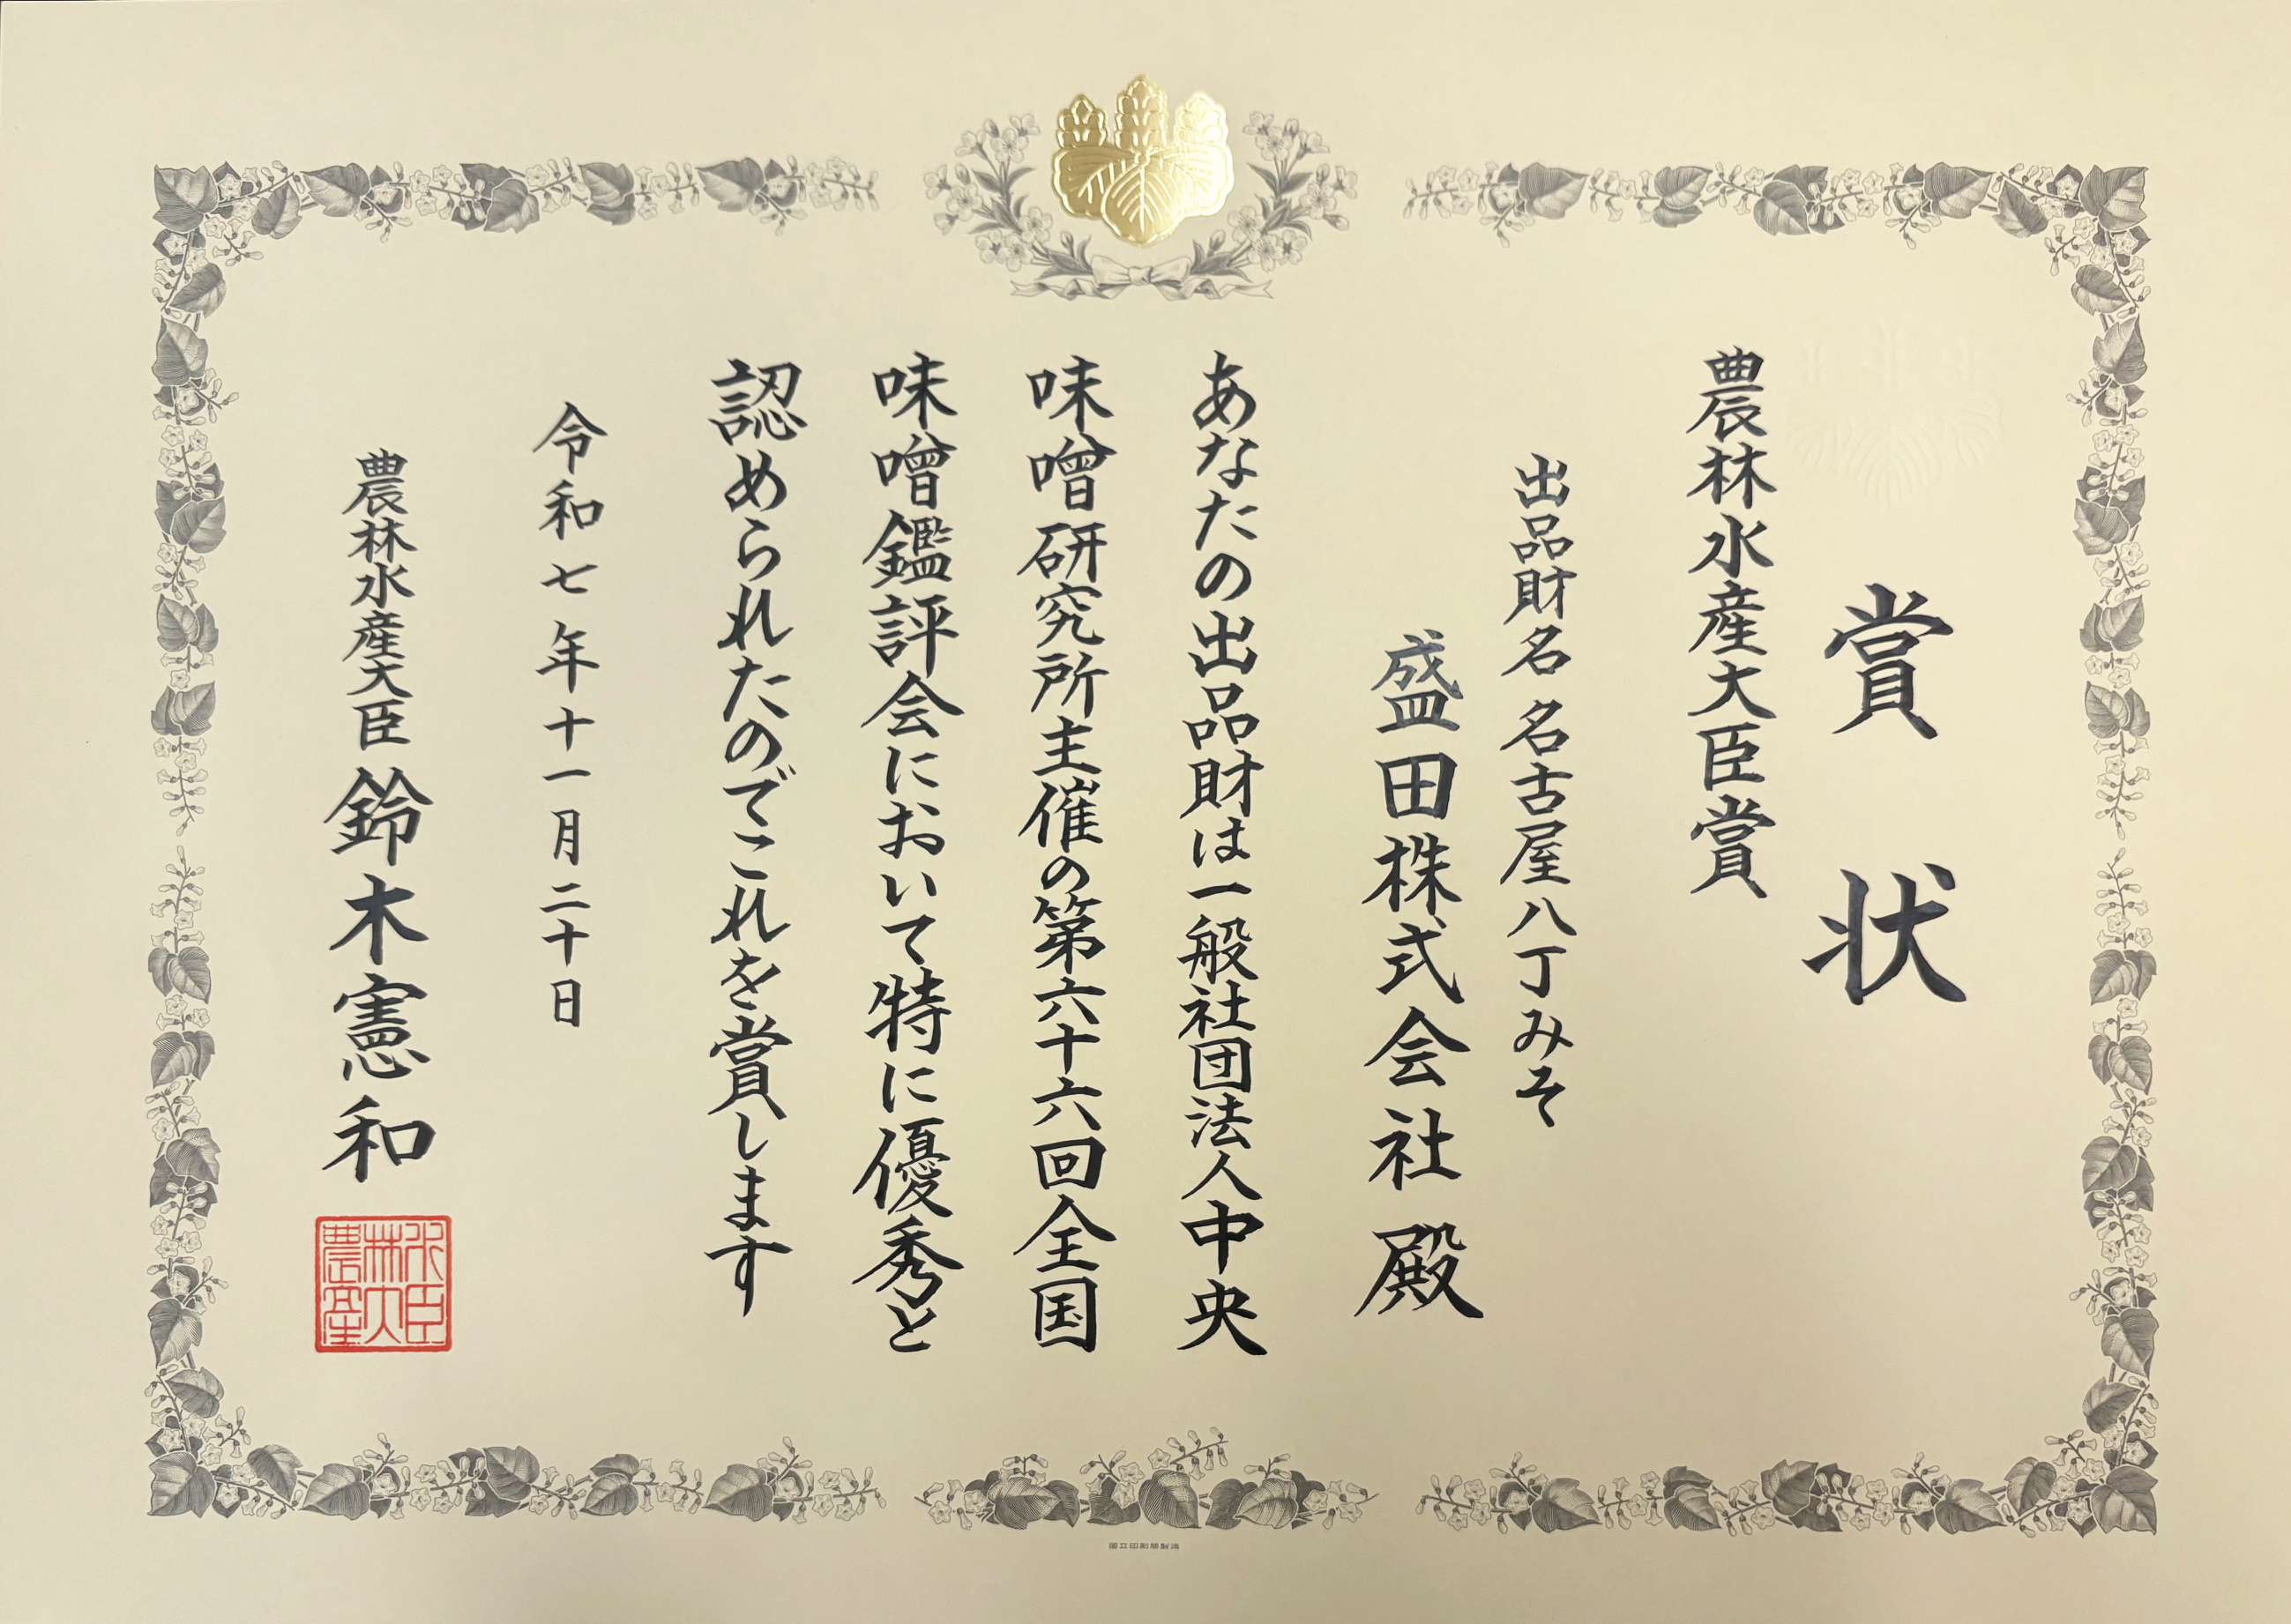 賞状
農林水産大臣賞
出品財名 名古屋八丁みそ
盛田株式会社 殿
あなたの出品財は一般社団法人中央
味噌研究所主催の第六十六回全国
味噌鑑評会において特に優秀と
認められたのでこれを賞します
令和七年十一月二十日
農林水産大臣 鈴木憲和
農林水産大臣
国立印刷局製造